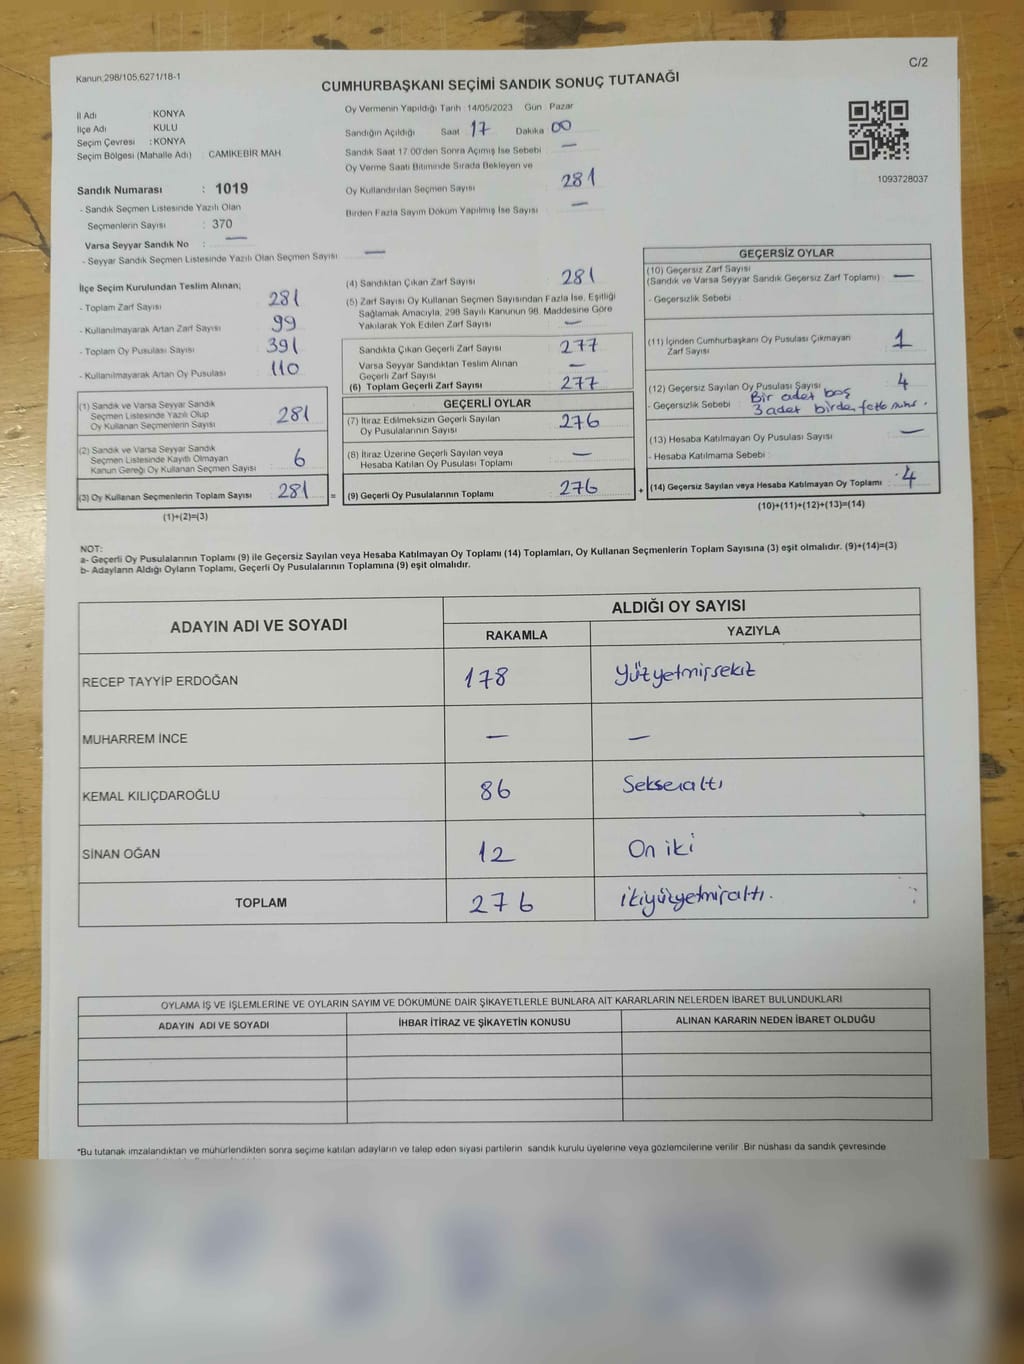 Kanun;298/105,6271/18-1
C/2
CUMHURBAŞKANI SEÇİMİ SANDIK SONUÇ TUTANAĞI
İl Adı KONYA
İlçe Adı KULU
Seçim Çevresi : KONYA
Seçim Bölgesi (Mahalle Adı) : CAMİKEBİR MAH
Sandık Numarası : 1019
- Sandık Seçmen Listesinde Yazılı Olan
Seçmenlerin Sayısı : 370
Varsa Seyyar Sandık No : —
- Seyyar Sandık Seçmen Listesinde Yazılı Olan Seçmen Sayısı —
Oy Vermenin Yapıldığı Tarih 14/05/2023 Gün : Pazar
Sandığın Açıldığı Saat 17 Dakika 00
Sandık Saat 17.00'den Sonra Açımış İse Sebebi —
Oy Verme Saati Bitiminde Sırada Bekleyen ve
Oy Kullandırılan Seçmen Sayısı 281
Birden Fazla Sayım Döküm Yapılmış İse Sayısı —
1093728037
İlçe Seçim Kurulundan Teslim Alınan;
- Toplam Zarf Sayısı 281
- Kullanılmayarak Artan Zarf Sayısı 99
- Toplam Oy Pusulası Sayısı 391
- Kullanılmayarak Artan Oy Pusulası 110
(1) Sandık ve Varsa Seyyar Sandık
Seçmen Listesinde Yazılı Olup
Oy Kullanan Seçmenlerin Sayısı 281
(2) Sandık ve Varsa Seyyar Sandık
Seçmen Listesinde Kayıtlı Olmayan
Kanun Gereği Oy Kullanan Seçmen Sayısı 6
(3) Oy Kullanan Seçmenlerin Toplam Sayısı 281 =
(1)+(2)=(3)
(4) Sandıktan Çıkan Zarf Sayısı 281
(5) Zarf Sayısı Oy Kullanan Seçmen Sayısından Fazla İse, Eşitliği
Sağlamak Amacıyla, 298 Sayılı Kanunun 98. Maddesine Göre
Yakılarak Yok Edilen Zarf Sayısı —
Sandıkta Çıkan Geçerli Zarf Sayısı 277
Varsa Seyyar Sandıktan Teslim Alınan
Geçerli Zarf Sayısı —
(6) Toplam Geçerli Zarf Sayısı 277
GEÇERLİ OYLAR
(7) İtiraz Edilmeksizin Geçerli Sayılan
Oy Pusulalarının Sayısı 276
(8) İtiraz Üzerine Geçerli Sayılan veya
Hesaba Katılan Oy Pusulası Toplamı —
(9) Geçerli Oy Pusulalarının Toplamı 276 +
GEÇERSİZ OYLAR
(10) Geçersiz Zarf Sayısı
(Sandık ve Varsa Seyyar Sandık Geçersiz Zarf Toplamı) : —
- Geçersizlik Sebebi :
(11) İçinden Cumhurbaşkanı Oy Pusulası Çıkmayan
Zarf Sayısı 1
(12) Geçersiz Sayılan Oy Pusulası Sayısı 4
- Geçersizlik Sebebi Bir adet boş
3 adet birden
(13) Hesaba Katılmayan Oy Pusulası Sayısı —
- Hesaba Katılmama Sebebi :
(14) Geçersiz Sayılan veya Hesaba Katılmayan Oy Toplamı 4
(10)+(11)+(12)+(13)=(14)
NOT:
a- Geçerli Oy Pusulalarının Toplamı (9) ile Geçersiz Sayılan veya Hesaba Katılmayan Oy Toplamı (14) Toplamları, Oy Kullanan Seçmenlerin Toplam Sayısına (3) eşit olmalıdır. (9)+(14)=(3)
b- Adayların Aldığı Oyların Toplamı, Geçerli Oy Pusulalarının Toplamına (9) eşit olmalıdır.
ADAYIN ADI VE SOYADI
ALDIĞI OY SAYISI
RAKAMLA YAZIYLA
RECEP TAYYİP ERDOĞAN 178 Yüzyetmişsekiz
MUHARREM İNCE — —
KEMAL KILIÇDAROĞLU 86 Seksenaltı
SİNAN OĞAN 12 On iki
TOPLAM 276 ikiyüzyetmişaltı.
OYLAMA İŞ VE İŞLEMLERİNE VE OYLARIN SAYIM VE DÖKÜMÜNE DAİR ŞİKAYETLERLE BUNLARA AİT KARARLARIN NELERDEN İBARET BULUNDUKLARI
ADAYIN ADI VE SOYADI İHBAR İTİRAZ VE ŞİKAYETİN KONUSU ALINAN KARARIN NEDEN İBARET OLDUĞU
*Bu tutanak imzalandıktan ve mühürlendikten sonra seçime katılan adayların ve talep eden siyasi partilerin sandık kurulu üyelerine veya gözlemcilerine verilir .Bir nüshası da sandık çevresinde